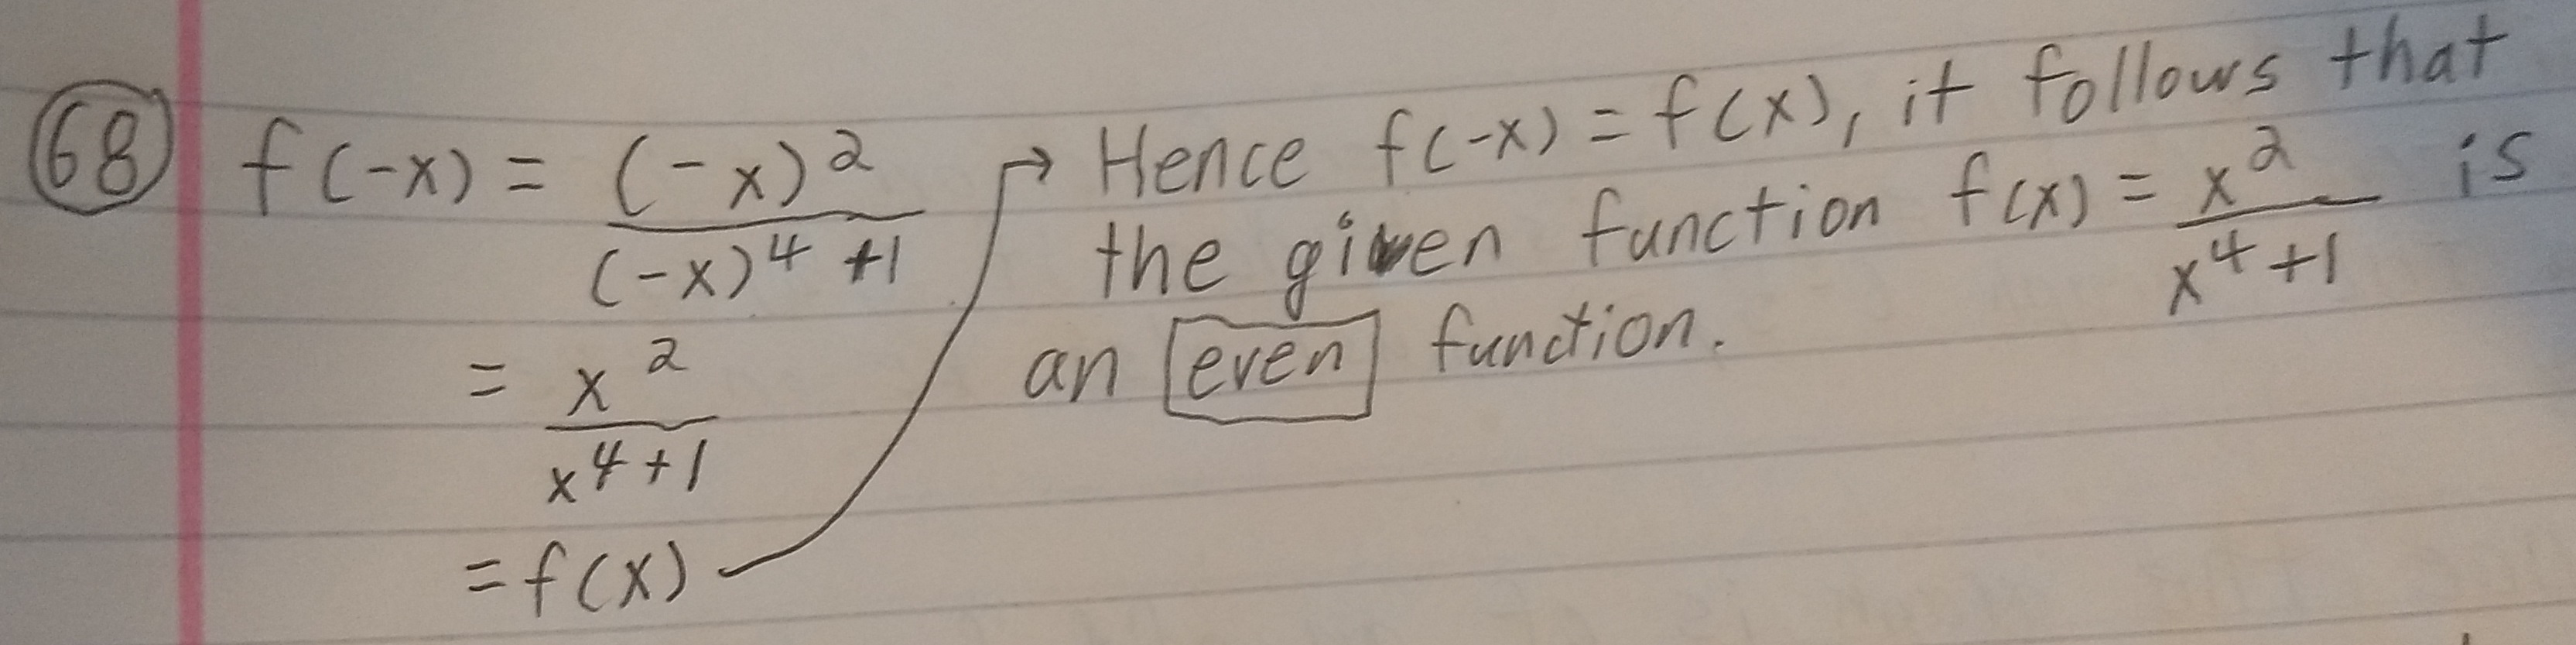 68 f(-x) = (-x)^2 / ((-x)^4 + 1)
= x^2 / (x^4 + 1)
= f(x)
→ Hence f(-x) = f(x), it follows that
the given function f(x) = x^2 / (x^4 + 1) is
an even function.